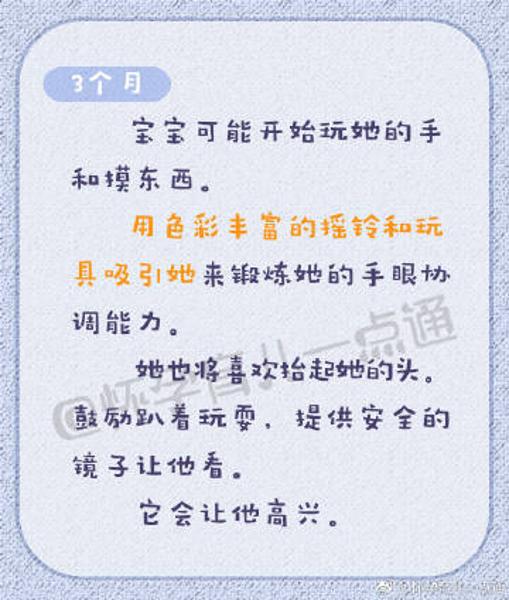 3个月
宝宝可能开始玩她的手
和摸东西。
用色彩丰富的摇铃和玩
具吸引她来锻炼她的手眼协
调能力。
她也将喜欢抬起她的头。
鼓励趴着玩耍，提供安全的
镜子让他看。
它会让他高兴。
@怀孕育儿一点通